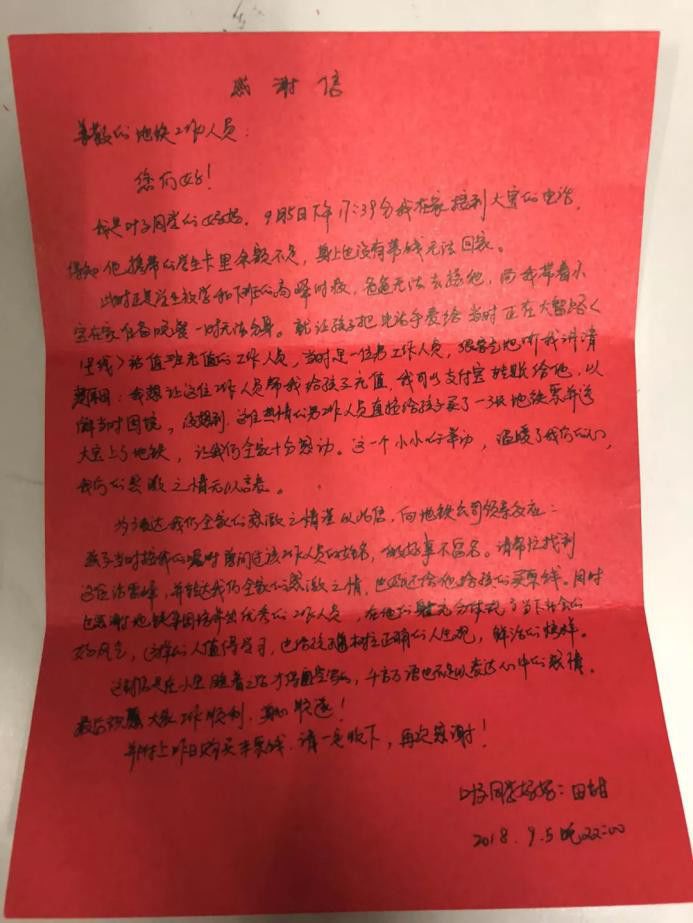 感谢信
尊敬的地铁工作人员：
您们好！
我是叶子同学的妈妈，9月5日下午17:39分我在家接到大宝的电话，
得知他携带的学生卡里余额不足，身上也没有带钱无法回家。
此时正是学生放学和下班的高峰时段，爸爸无法去接他，而我带着小
宝在家准备晚餐一时无法分身。就让孩子把电话手表给当时正在大智路（
号线）站值班充值的工作人员，当时是一位男工作人员，很客气地听我讲清
楚原因：我想让这位工作人员帮我给孩子充值，我可以支付宝转账给他，以
解当时困境。没想到，这位热情的男工作人员直接给孩子买了一张地铁票并送
大宝上了地铁，让我们全家十分感动。这一个小小的举动，温暖了我们的心，
我们的感激之情无以言表。
为了表达我们全家的感激之情谨以此信，向地铁公司领导反应：
孩子当时按我的嘱咐询问过该工作人员的姓名，做好事不留名。请帮忙找到
这位活雷锋，并转达我们全家的感激之情，也好还给他给孩子买票钱。同时
也感谢地铁集团培养出优秀的工作人员，在他们身上充分体现了当下社会的
好风气，这样的人值得学习，也给孩子树立正确的人生观，鲜活的榜样。
这封信是在小宝睡着之后才得空写的，千言万语也不足以表达心中的感情。
最后祝愿大家工作顺利，身心愉快！
并附上昨日购买车票钱，请一定收下，再次感谢！
叶子同学妈妈：田甜
2018.9.5晚22:00